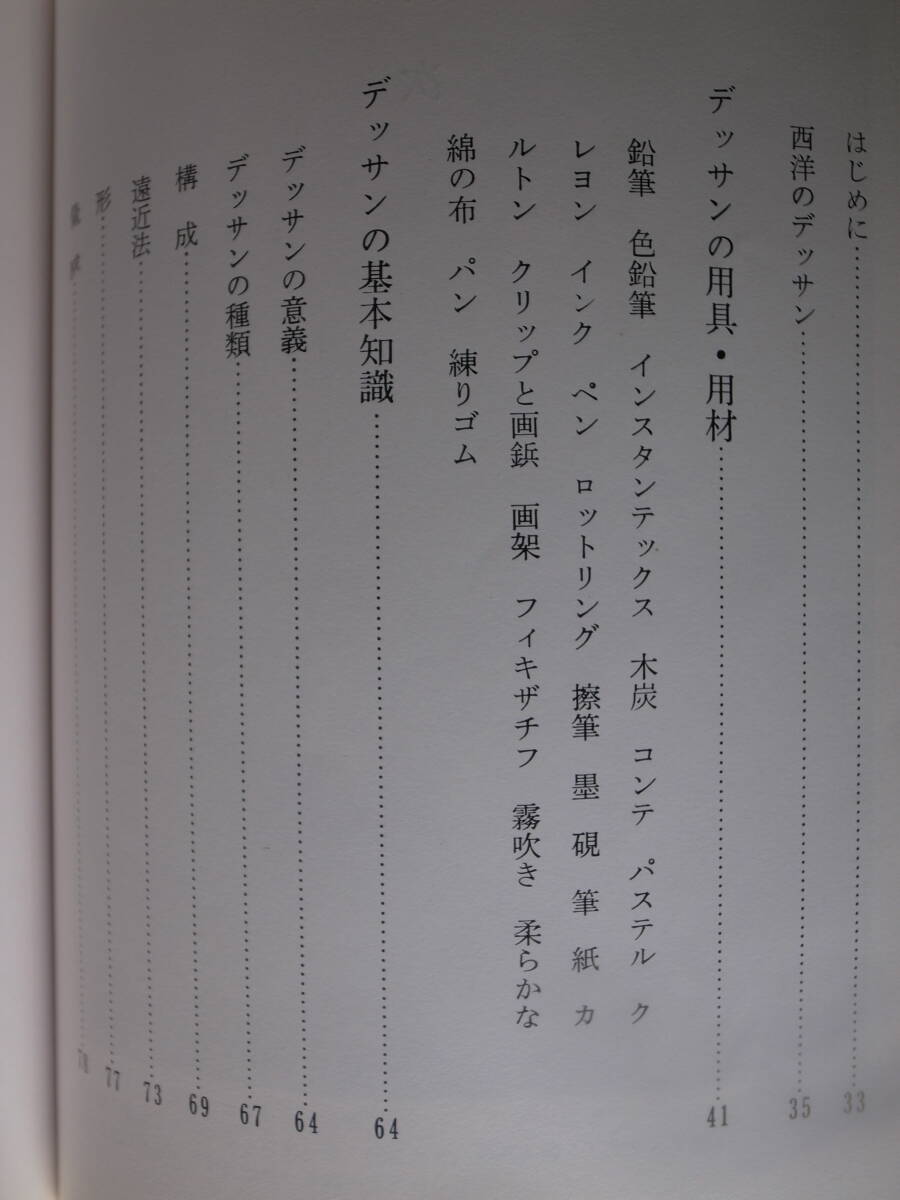 はじめに……………………33
西洋のデッサン……………………35
デッサンの用具・用材……………………41
鉛筆　色鉛筆　インスタンテックス　木炭　コンテ　パステル　ク
レヨン　インク　ペン　ロットリング　擦筆　墨　硯　筆　紙　カ
ルトン　クリップと画鋲　画架　フィキザチフ　霧吹き　柔らかな
綿の布　パン　練りゴム
デッサンの基本知識……………………64
デッサンの意義……………………64
デッサンの種類……………………67
構　成……………………69
遠近法……………………73
形……………………77
……………………78